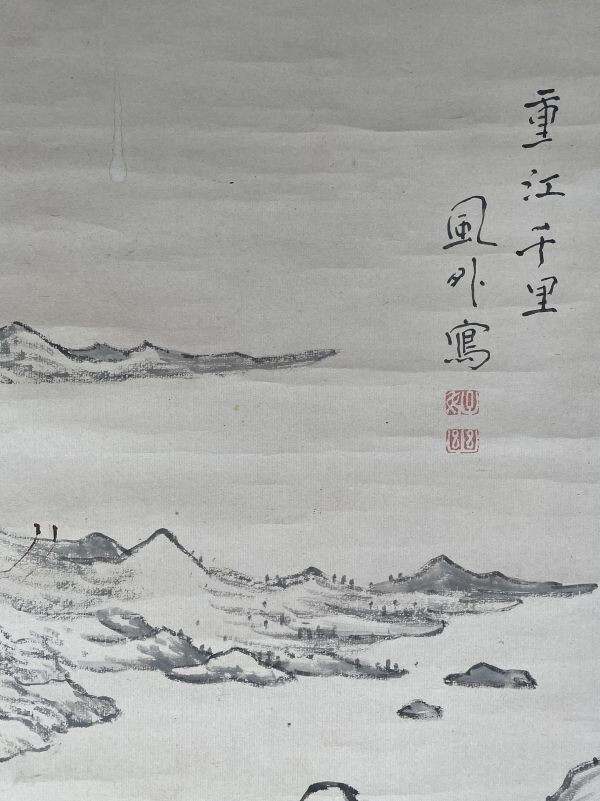 重江千里
風外寫